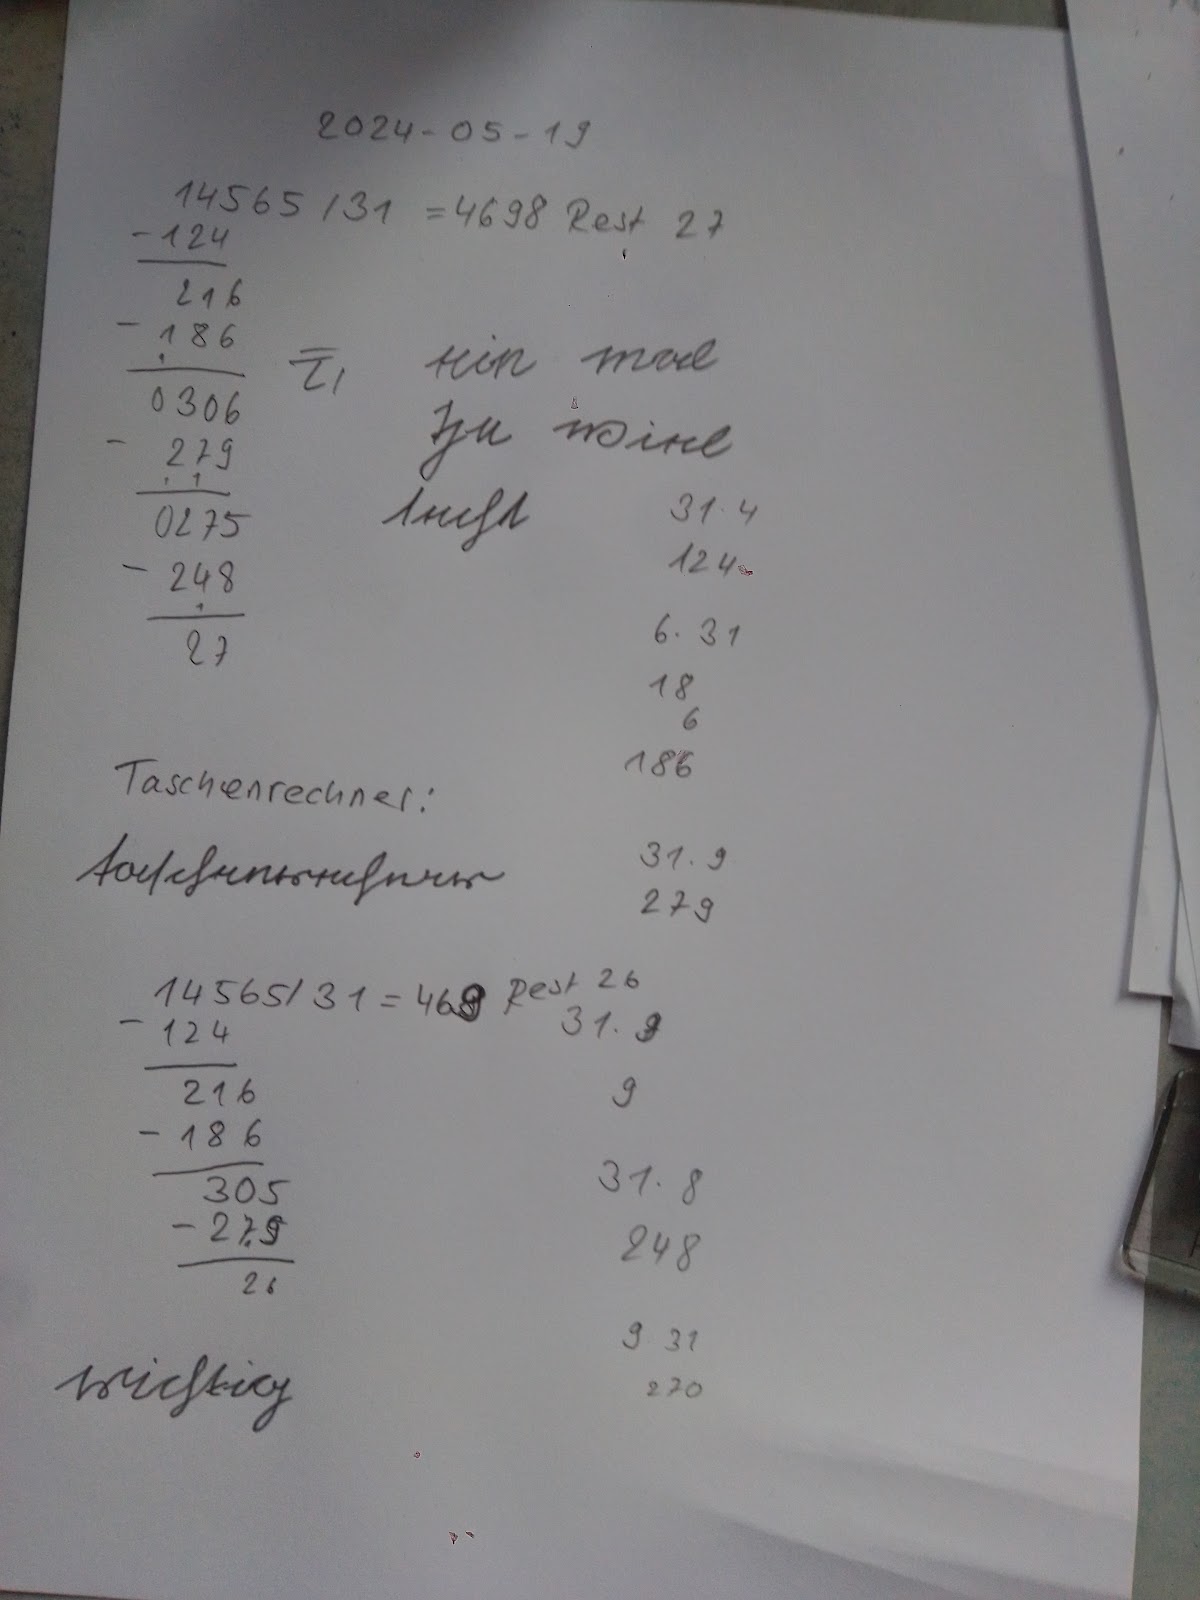 2024-05-19
14565/31 = 4698 Rest 27
-124
216
-186
0306
- 279
0275
- 248
27
ein mal
zu viel
31·4
124
6·31
18
6
186
Taschenrechner:
Taschenrechner
31·9
279
14565/31 = 469 Rest 26
-124
216
-186
305
-279
26
31·9
9
31·8
248
9 31
270
wichtig